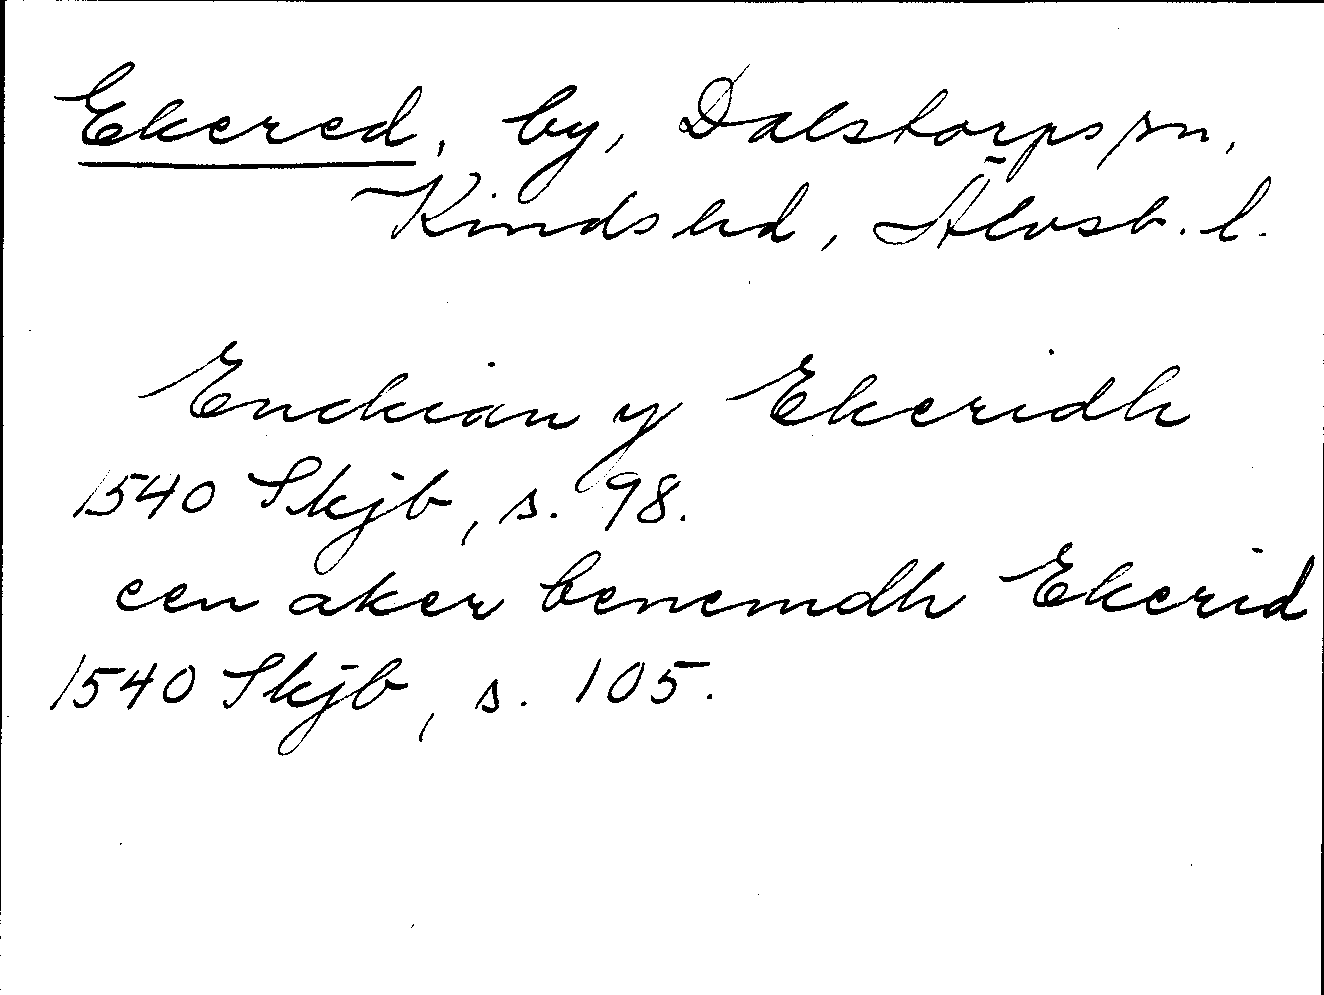 Ekered, by, Dalstorps sn,
Kinds hd, Älvsb. l.
Enckian y Ekeridh
1540 Skjb, s. 98.
een aker benemdh Ekerid
1540 Skjb, s. 105.